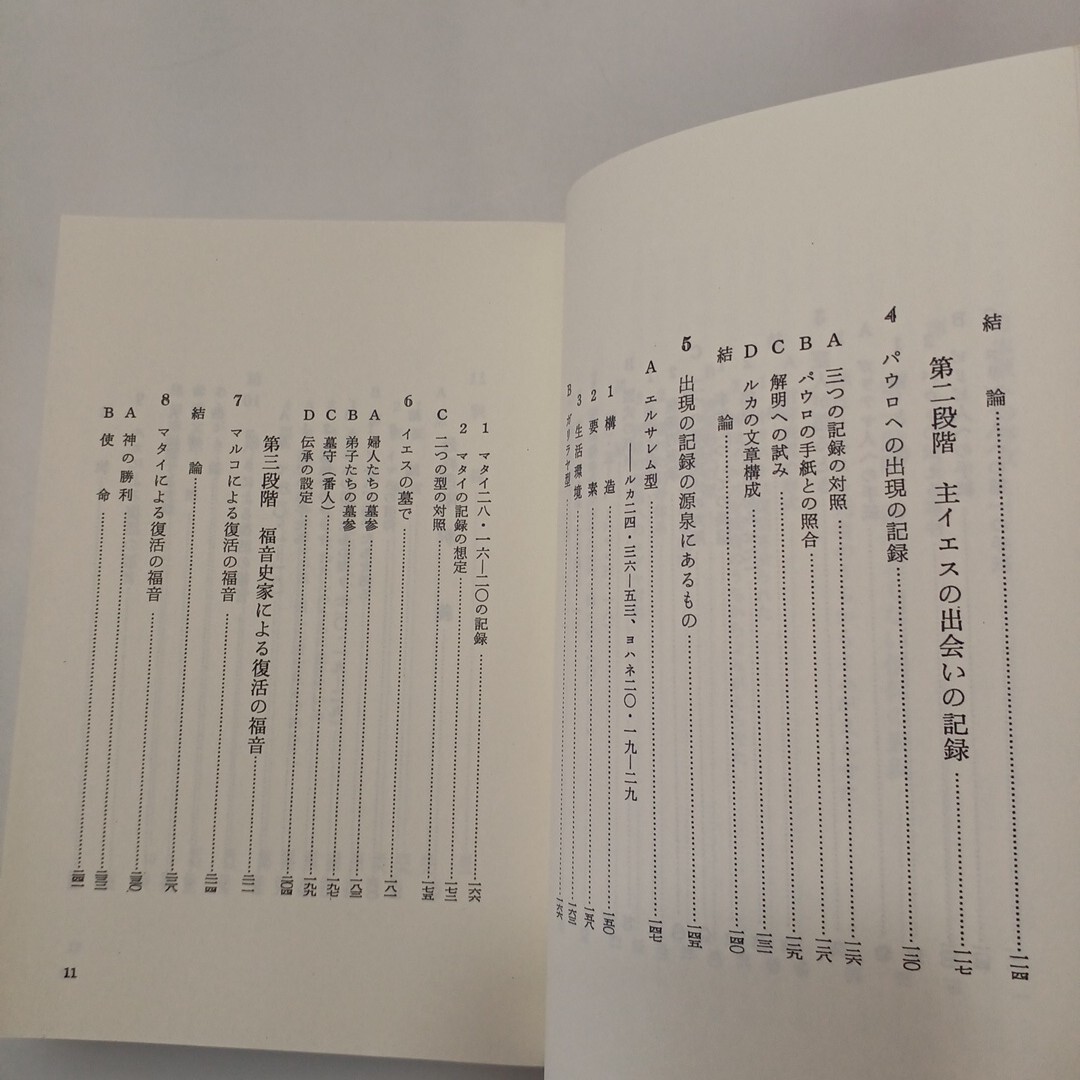 結論……一一四
第二段階 主イエスの出会いの記録……一一七
4 パウロへの出現の記録……一二〇
A 三つの記録の対照……一二六
B パウロの手紙との照合……一二八
C 解明への試み……一二九
D ルカの文章構成……一三一
結論……一四〇
5 出現の記録の源泉にあるもの……一四五
A エルサレム型……一四七
――ルカ二四・三六―五三、ヨハネ二〇・一九―二九
1 構造……一五〇
2 要素……一五八
3 生活環境……一六三
B ガリラヤ型……一六六
1 マタイ二八・一六―二〇の記録……一六六
2 マタイの記録の想定……一七二
C 二つの型の対照……一七五
6 イエスの墓で……一八一
A 婦人たちの墓参
B 弟子たちの墓参……一八三
C 墓守(番人)……一九七
D 伝承の設定……一九九
……二〇四
第三段階 福音史家による復活の福音……二一一
7 マルコによる復活の福音……二一四
結論……二二八
8 マタイによる復活の福音……二三〇
A 神の勝利
B 使命……二三二
……二四一
11